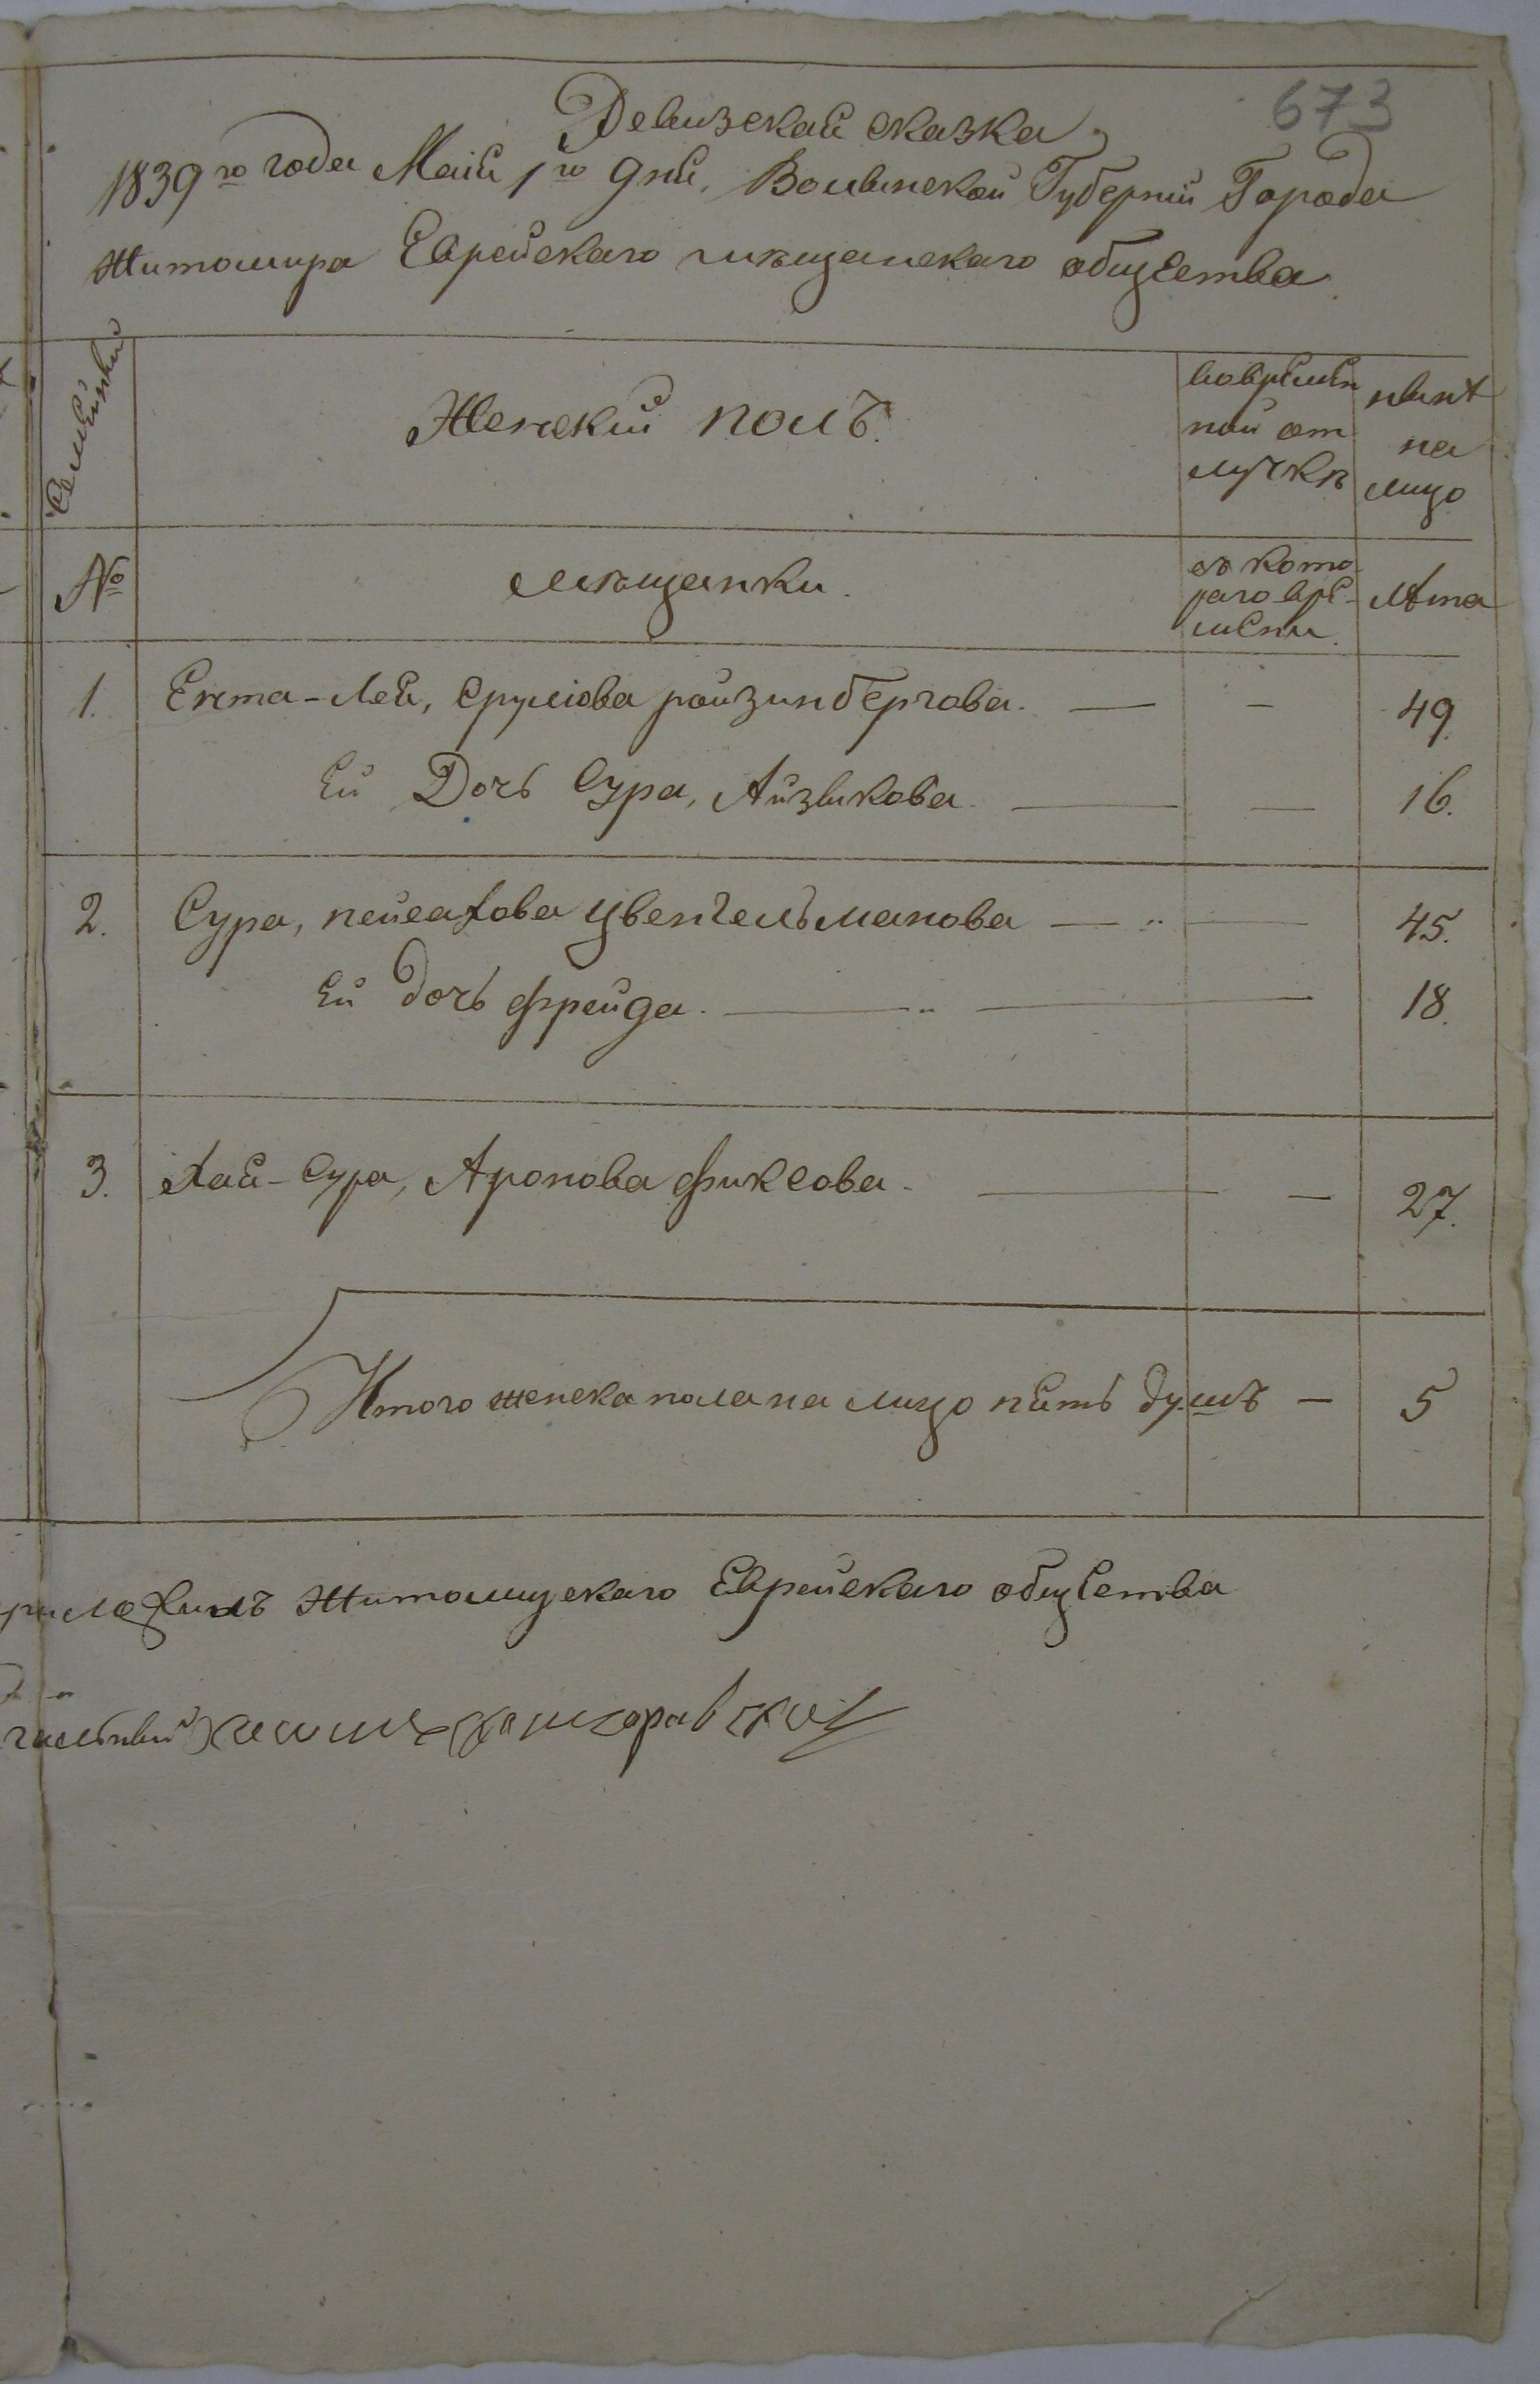 673
Ревизская сказка
1839го года Маія 1го дня, Волынской Губерніи Города
Житомира Еврейскаго мѣщанскаго общества.
Семейный
Женскій полъ.
во врѣмен
ной от
лучкѣ
нынѣ
на
лицо
№
мѣщанки.
съ кото
раго врѣ-
мени.
лѣта
1. Ента-Лея, Срулiова ройзинбергова. — — 49
Ея Дочь Сура, Айзыкова. — — 16.
2. Сура, пейсахова цвенгельманова — „ — 45.
Ея дочь фрейда. — „ — 18.
3. Хая-Сура, Аронова фиксова. — — 27.
Итого женска пола на лицо пять душъ — 5
риложилъ Житомирскаго Еврейскаго общества